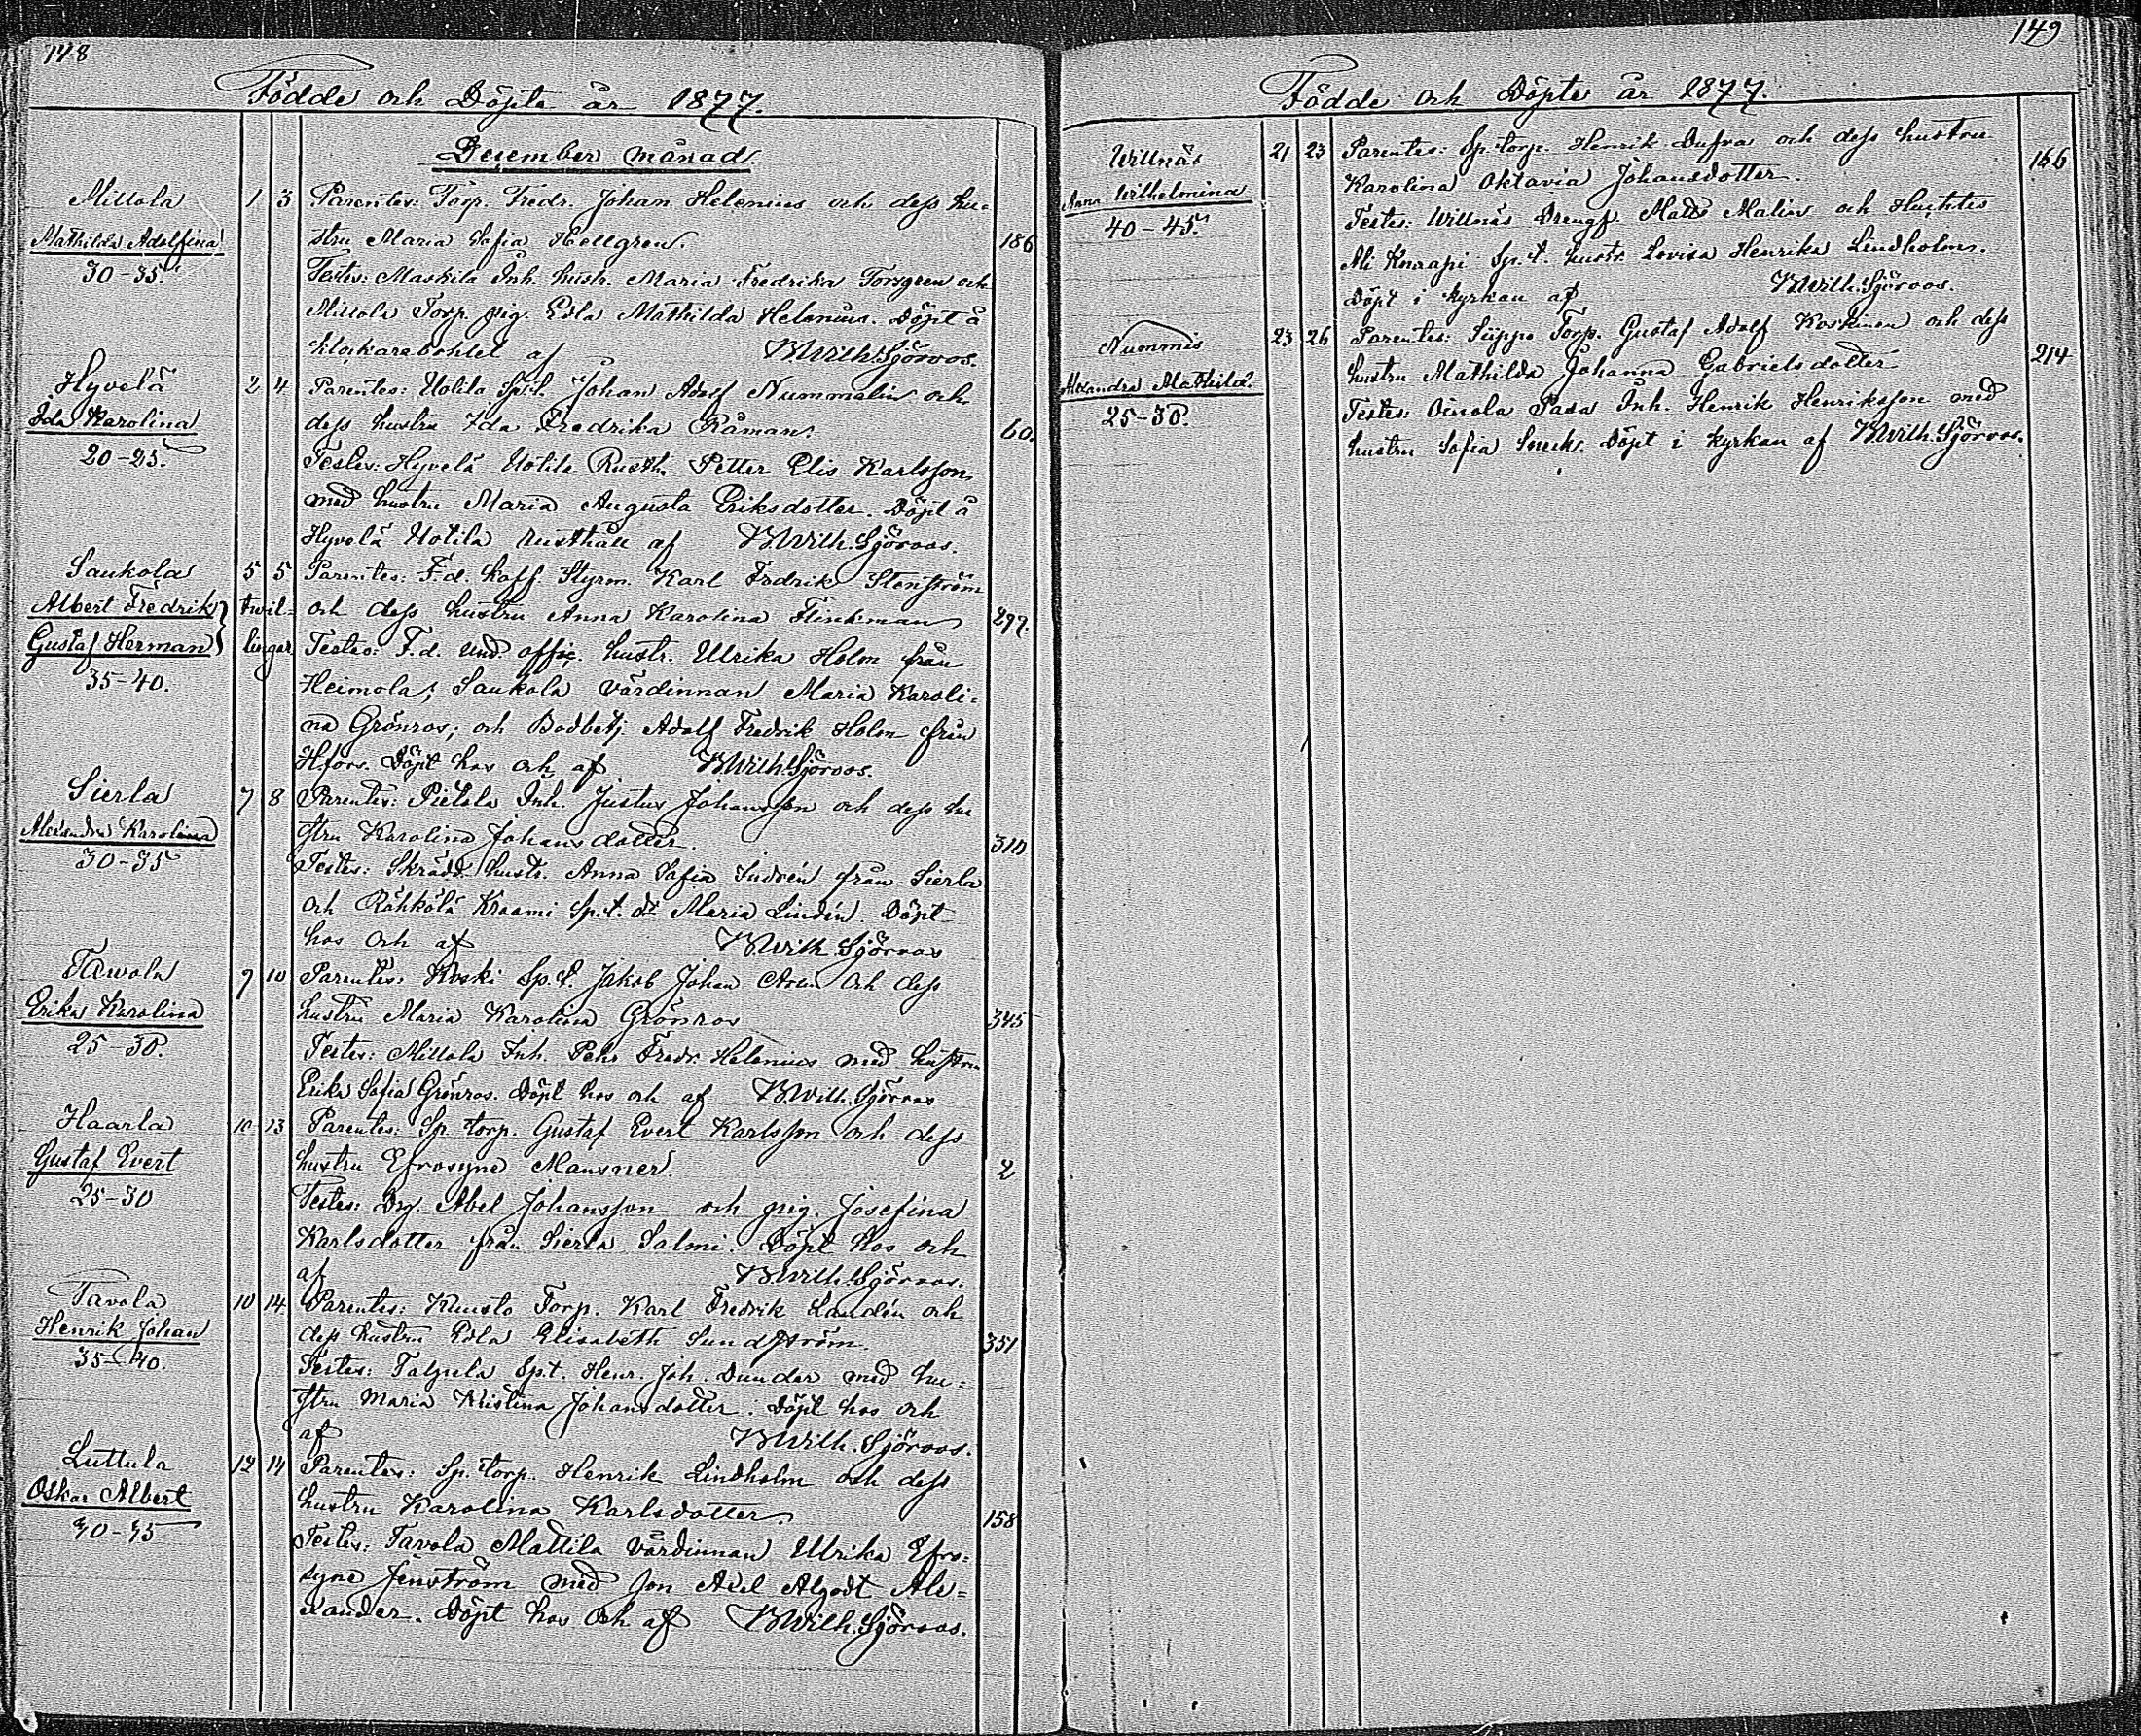 148
Födde och Döpte år 1877.
December månad.
Millola 1 3 Parentes: Torp. Fredr. Johan Helenius och dess hu-
Mathilda Adolfina stru Maria Sofia Hellgren. 186
30-35. Testes: Maskila Inh. hustr. Maria Fredrika Forsgren och
Millola Torp. pig. Edla Mathilda Helenius. Döpt å
klockarebohlet af BWilh.Sjöroos.
Hyvelä 2 4 Parentes: Uotila Sp.t. Johan Adolf Nummelin och
Ida Karolina dess hustru Ida Fredrika Råman. 60.
20-25. Testes: Hyvelä Uotila Rusth. Petter Elis Karlsson
med hustru Maria Augusta Eriksdotter. Döpt å
Hyvelä Uotila rusthåll af BWilh.Sjöroos.
Saukola 5 5 Parentes: F.d. Styrm. Karl Fredrik Stenström
Albert Fredrik twil- och dess hustru Anna Karolina Flinkman 297.
Gustaf Herman lingar Testes: F.d. und. offic. hustr. Ulrika Holm från
35-40. Heimola; Saukola värdinnan Maria Karoli-
na Grönros; och Bodbetj. Adolf Fredrik Holm från
Hfors. Döpt hos och af BWilh.Sjöroos.
Sierla 7 8 Parentes: Pietola Inh. Justus Johansson och dess hu
Alexandra Karolina stru Karolina Johansdotter. 310
30-35 Testes: Skrädd. hustr. Anna Sofia från Sierla
och Röhkölä Kraami Sp.t. dr Maria Lindén. Döpt
hos och af BWilh Sjöroos
Tawola 9 10 Parentes: Koski Sp.t. Jakob Johan och dess
Erika Karolina hustru Maria Karolina Grönros 345
25-30. Testes: Millola Inh. Pehr Fredr. Helenius med hustru
Erika Sofia Grönros. Döpt hos och af BWilh.Sjöroos
Haarla 10 13 Parentes: Sp. torp. Gustaf Evert Karlsson och dess
Gustaf Evert hustru Efrosyne Mansner. 2
25-30 Testes: Drg. Abel Johansson och pig. Josefina
Karlsdotter från Sierla Salmi. Döpt hos och
af BWilh.Sjöroos.
Tavola 10 14 Parentes: Kuusto Torp. Karl Fredrik Landén och
Henrik Johan dess hustru Edla Elisabeth Sundström. 351
35-40. Testes: Sp.t. Henr. Joh. Dunder med hu-
stru Maria Kristina Johansdotter. Döpt hos och
af BWilh.Sjöroos.
Luttula 12 14 Parentes: Sp. torp. Henrik Lindholm och dess
Oskar Albert hustru Karolina Karlsdotter. 158
30-35 Testes: Tavola Mattila värdinnan Ulrika Efro-
syne Jenström med son Axel Algodt Ale-
xander. Döpt hos och af BWilh.Sjöroos.
149
Födde och Döpte år 1877.
Willnäs 21 23 Parentes: Sp. torp. Henrik Dufva och dess hustru 166
Anna Wilhelmina Karolina Oktavia Johansdotter.
40-45. Testes: Willnäs Drengf. Matts Malin och Huhtis
Ali Knaapi Sp.t. hustr. Lovisa Henrika Lindholm.
Döpt i kyrkan af BWilh.Sjöroos.
Nummis 23 26 Parentes: Torp. Gustaf Adolf Koskinen och dess 214
Alexandra Mathilda. hustru Mathilda Johanna Gabrielsdotter
25-30. Testes: Oinola Pasa Inh. Henrik Henriksson med
hustru Sofia Döpt i kyrkan af BWilh.Sjöroos.